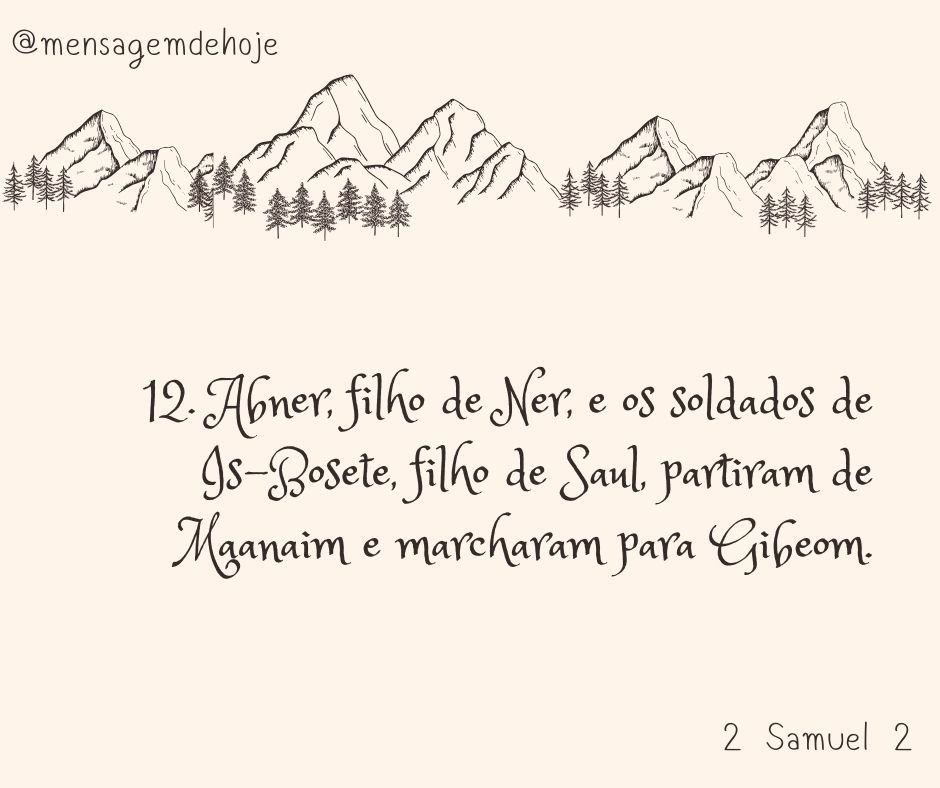 @mensagemdehoje
12. Abner, filho de Ner, e os soldados de
Is-Bosete, filho de Saul, partiram de
Maanaim e marcharam para Gibeom.
2 Samuel 2